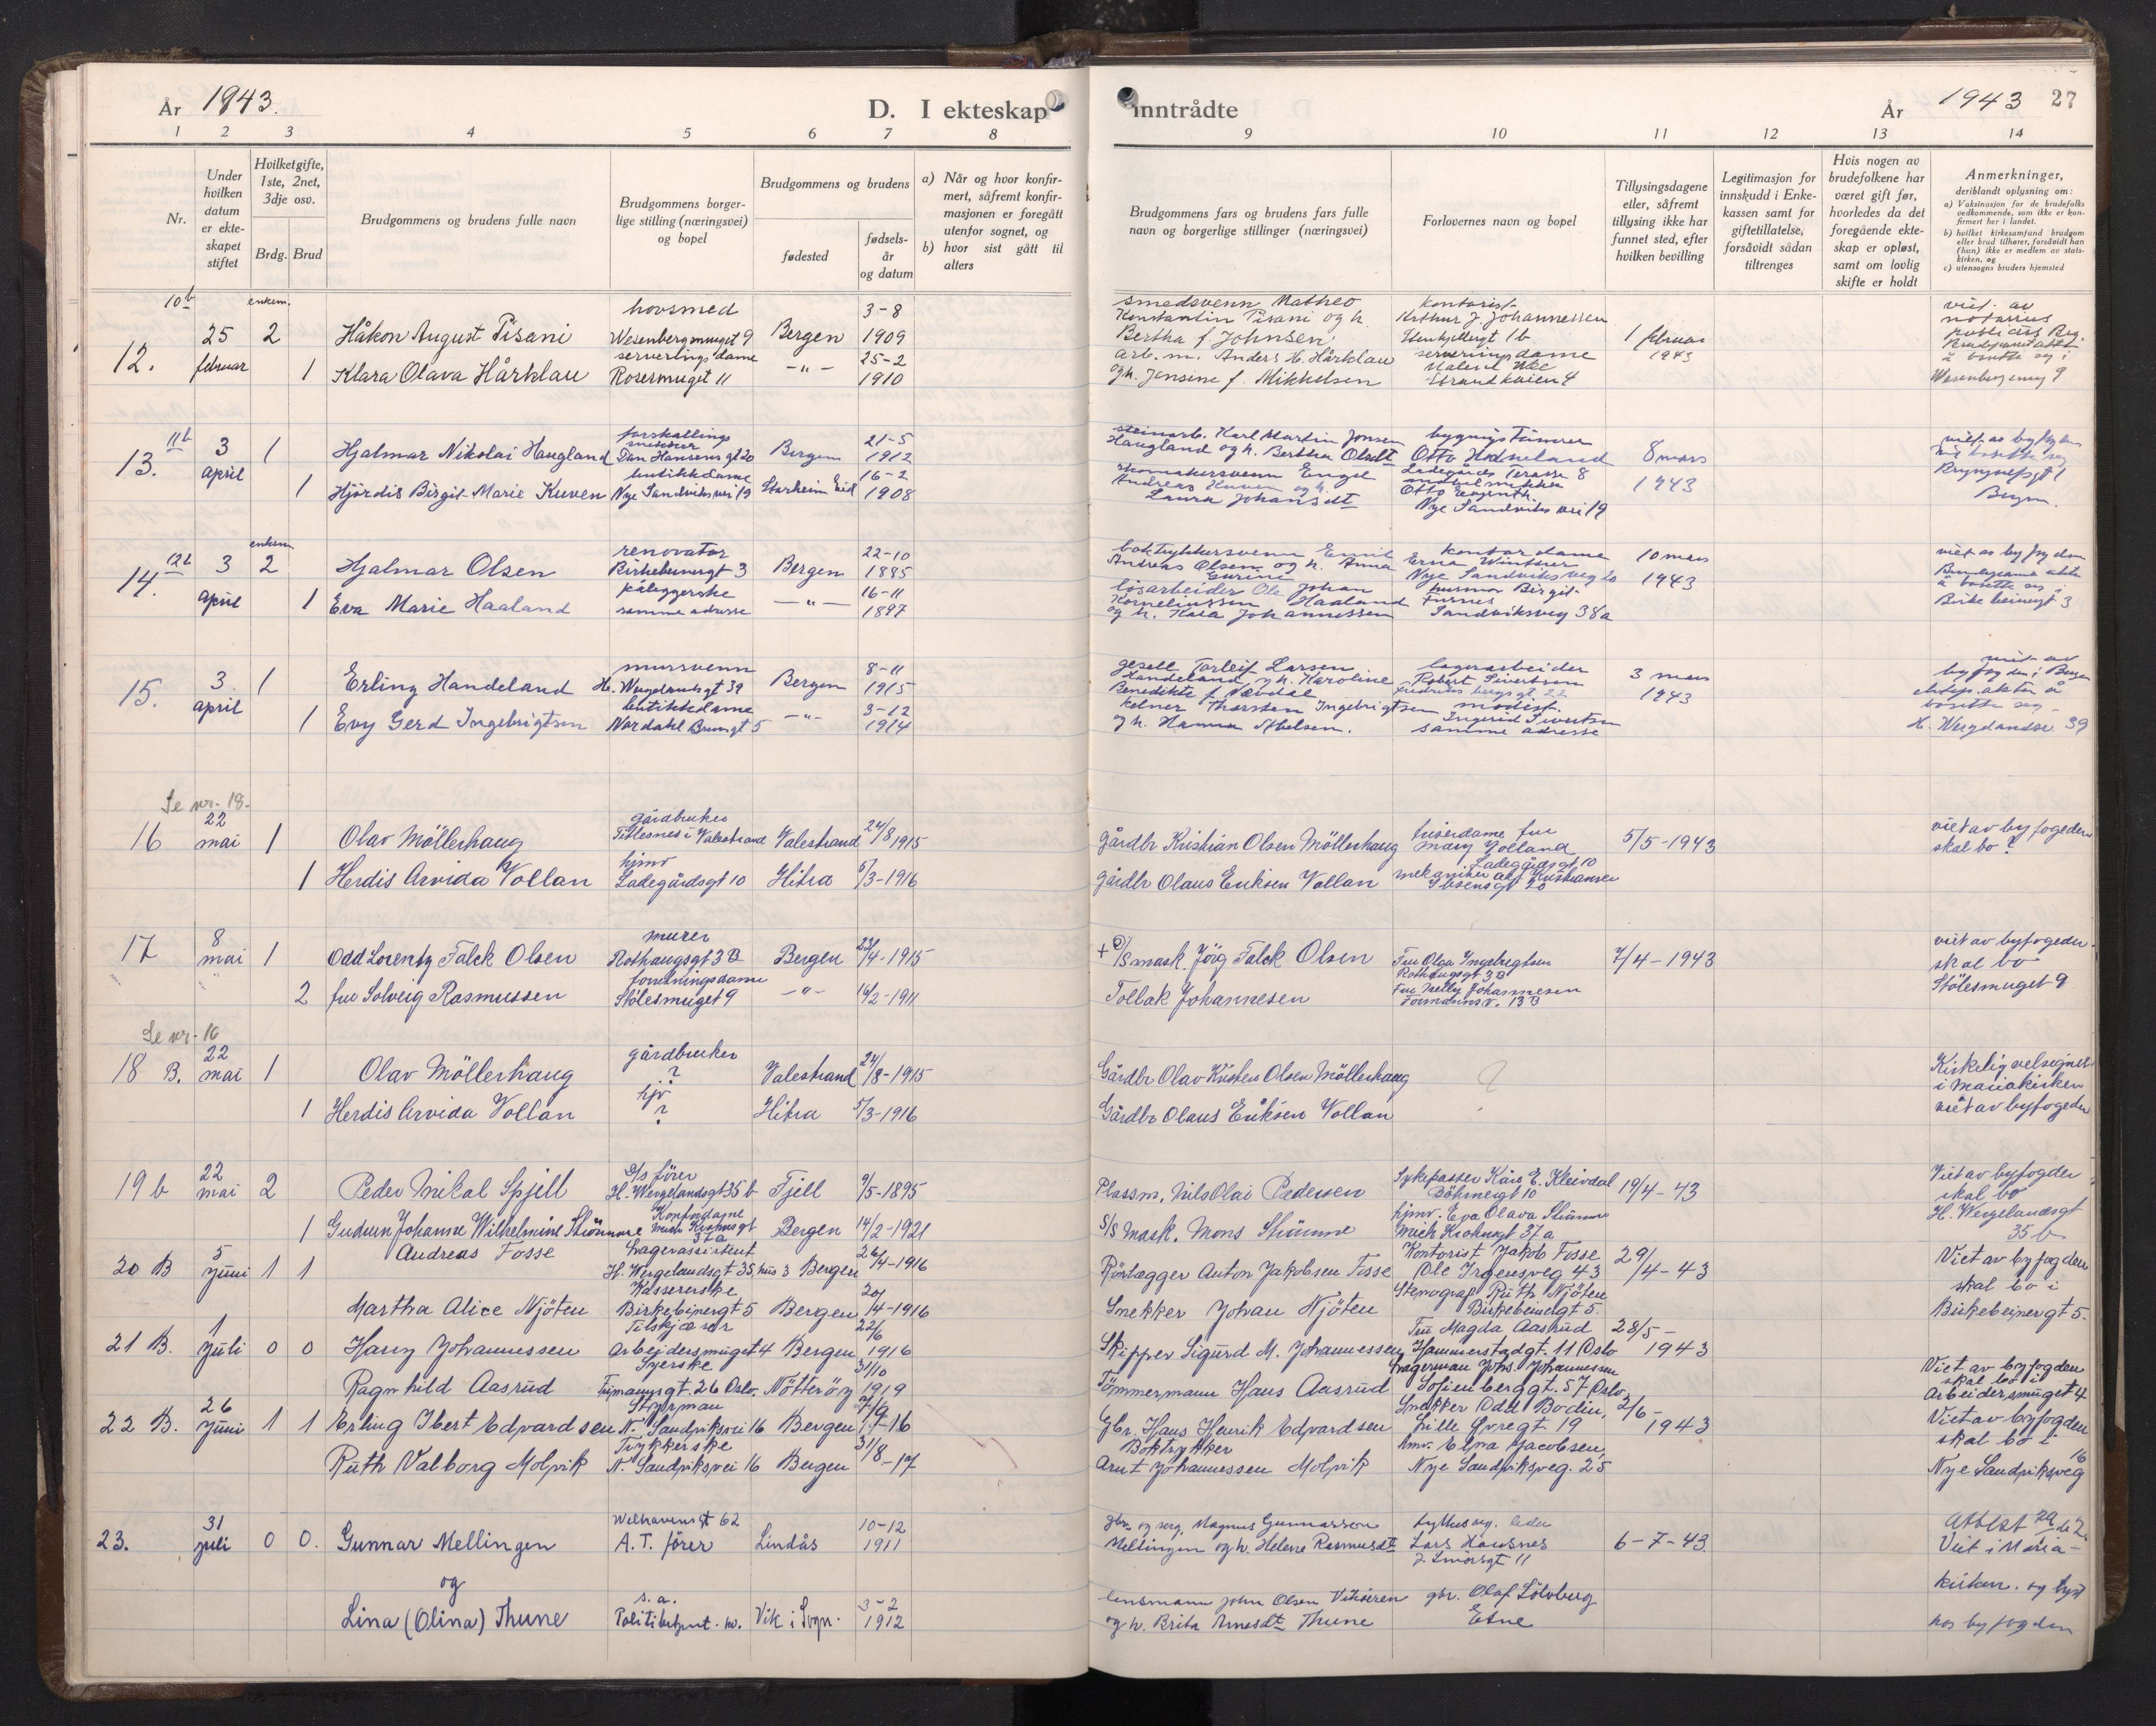 År 1943. D. I ekteskap
inntrådte År 1943 27
1 2 3 4 5 6 7 8
9 10 11 12 13 14
Nr.
Under hvilken datum er ekteskapet stiftet
Hvilket gifte, 1ste, 2net, 3dje osv.
Brdg. Brud
Brudgommens og brudens fulle navn
Brudgommens borgerlige stilling (næringsvei) og bopel
Brudgommens og brudens
fødested
fødselsår og datum
a) Når og hvor konfirmert, såfremt konfirmasjonen er foregått utenfor sognet, og
b) hvor sist gått til alters
Brudgommens fars og brudens fars fulle navn og borgerlige stillinger (næringsvei)
Forlovernes navn og bopel
Tillysingsdagene eller, såfremt tillysing ikke har funnet sted, efter hvilken bevilling
Legitimasjon for innskudd i Enkekassen samt for giftetillatelse, forsåvidt sådan tiltrenges
Hvis nogen av brudefolkene har været gift før, hvorledes da det foregående ekteskap er opløst, samt om lovlig skifte er holdt
Anmerkninger,
deriblandt oplysning om:
a) Vaksinasjon for de brudefolks vedkommende, som ikke er konfirmert her i landet.
b) hvilket kirkesamfund brudgom eller brud tilhører, forsåvidt han (hun) ikke er medlem av statskirken, og
c) utensogns bruders hjemsted
10b enkem. hovsmed 3-8
12. 25 februar 2 Håkon August Pisani Wesenbergsmuget 9 Bergen 1909
serveringsdame 25-2
1 Klara Olava Hårklau Rosesmuget 11 -"- 1910
smedsvenn Matheo
Konstantin Pisani og h.
Bertha f. Johnsen
arb.m. Anders H. Hårklau
og h. Jensine f. Mikkelsen
kontorist
Arthur J. Johannessen
serveringsdame
Strandkaien 4
1 februar 1943
viet av
notarius
publicus
Wesenbergsmug 9
11b
13. 3 april 1 Hjalmar Nikolai Haugland Dan Hansens gt 20 Bergen 21-5 1912
butikkdame
1 Hjördis Birgit Marie Kuven Nye Sandviksvei 19 Starheim Eid 16-2 1908
steinarb. Karl Martin Jonsen
Haugland og h. Bertha Olsdt
skomakersvenn Engel
Andreas Kuven og h.
Laura Johansdt
Ladegårds Terasse 8
Nye Sandviks vei 19
8 mars 1943
Bergen
12b enkem
renovatør 22-10
14. 3 april 2 Hjalmar Olsen Birkebeinergt 3 Bergen 1885
påleggerske 16-11
1 Eva Marie Haaland samme adresse -"- 1897
boktrykkersvenn Emil
Andreas Olsen og h. Anna
løsarbeider Ole Johan
Korneliussen Haaland
og h. Kaia Johannessen
kontordame
Erna Wintner
Nye Sandviksveg 20
husmor Birgit
Furnes
Sandviksveg 38a
10 mars 1943
viet av byfogden
Birkebeinergt 3
mursvenn 8-11
15. 3 april 1 Erling Handeland H. Wergelandsgt 39 Bergen 1915
butikkdame 3-12
1 Evy Gerd Ingebrigtsen Nordahl Brunsgt 5 -"- 1914
gesell Torleif Larsen
Handeland og h. Karoline
Benedikte f. Nævdal
kelner Thorsten Ingebrigtsen
og h. Hanna Abelsen.
lagerarbeider
Robert Sivertsen
modist
Ingerid Sivertsen
samme adresse
3 mars 1943
viet av
byfogden i Bergen
H. Wergelandsg 39
Se nr. 18.
gårdbruker
16 22 mai 1 Olav Möllerhaug Titlesnes i Valestrand Valestrand 24/8 1915
hjmv
1 Herdis Arvida Vollan Ladegårdsgt 10 Hitra 5/3-1916
gårdbr Kristian Olsen Möllerhaug
gårdbr Olaus Eriksen Vollan
friserdame fru
Mary Golland
Ladegårdsgt 10
Ibsensgt 20
5/5-1943
viet av byfogeden
skal bo ?
murer
17 8 mai 1 Odd Lorentz Falck Olsen Rothaugsgt 3B Bergen 23/4-1915
forretningsdame
2 fru Solveig Rasmussen Stölesmuget 9 -"- 16/2-1911
+ D/S mask. Jörg Falck Olsen
Tollak Johannesen
Fru Olga Ingebrigtsen
Rothaugsgt 3B
Fru Nelly Johannesen
Formannsv. 13B
7/4-1943
viet av byfogeden
skal bo
Stölesmuget 9
Se nr. 16
18 B. 22 mai 1 Olav Möllerhaug gårdbruker ? Valestrand 24/8-1915
hjv
1 Herdis Arvida Vollan ? Hitra 5/3-1916
Gårdbr Olav Kristen Olsen Möllerhaug
Gårdbr Olaus Eriksen Vollan
?
Kirkelig velsignet
i Mariakirken
viet av byfogeden
19 b 22 mai 2 Peder Mikal Spjell D/S förer H. Wergelandsgt 35 b Fjell 9/5-1895
Kontordame
1 Gudrun Johanne Wilhelmine Strömme Mich Krohnsgt 37a Bergen 14/2-1921
Plassm. Nils Olai Pedersen
S/S Mask. Mons Strömme
Sykepasser Kåre E. Kleivdal
Böhmergt 10
hjmv. Eva Olava Strömme
Mich Krohnsgt 37a
19/4-43
Viet av byfogden
skal bo
H. Wergelandsgt
35b
20 B 5 juni 1 1 Andreas Fosse Lagerassistent
H. Wergelandsgt 35, hus 3 Bergen 26/4-1916
Kassererske
Martha Alice Njöten Birkebeinergt 5 Bergen 20/4-1916
Rörlægger Anton Jakobsen Fosse
Snekker Johan Njöten
Kontorist Jakob Fosse
Ole Irgensveg 43
Stenograf Ruth Njöten
Birkebeinergt 5.
29/4-43
Viet av byfogden
skal bo i
Birkebeinergt 5.
21 B. 1 juli 0 0 Harry Johannessen Tilskjærer
Arbeidersmuget 4 Bergen 22/6 1916
Syerske
Ragnhild Aasrud gt. 26 Oslo. Nötteröy 31/10 1919
Skipper Sigurd M. Johannessen
Tömmermann Hans Aasrud
Fru Magda Aasrud
Hammerstadgt. 11 Oslo
Lagerman Johs. Johannessen
Sofienberggt. 57 Oslo
28/5-1943
Viet av byfogden
skal bo i
Arbeidersmuget 4
22 B. 26 juni 1 1 Erling Ibert Edvardsen Styrman
N. Sandviksvei 16 Bergen
Trykkerske
Ruth Valborg Molvik N. Sandviksvei 16 Bergen 31/8-17
Gbr. Hans Henrik Edvardsen
Boktrykker
Arnt Johannessen Molvik
Snekker Odd Bodin,
Lille Øvregt 19
hmv. Elna Jacobsen,
Nye Sandviksveg. 25
2/6-1943
Viet av byfogden
skal bo i
Nye Sandviksveg 16
23. 31 juli 0 0. Gunnar Mellingen Welhavensgt 62
A. T. förer Lindås 10-12 1911
og
s.a.
Lina (Olina) Thune Politibetjent. Vik i Sogn. 3-2 1912
gbr. og serg. Magnus Gunnarsson
Mellingen og h. Helene Rasmusdt
lensmann John Olsen Vikören
og h. Brita Arnesdt Thune
Lars Hausnes
gbr. Olaf Sölvberg
Etne
6-7-43.
Attest
Viet i Maria-
kirken. og lyst
hos byfogden